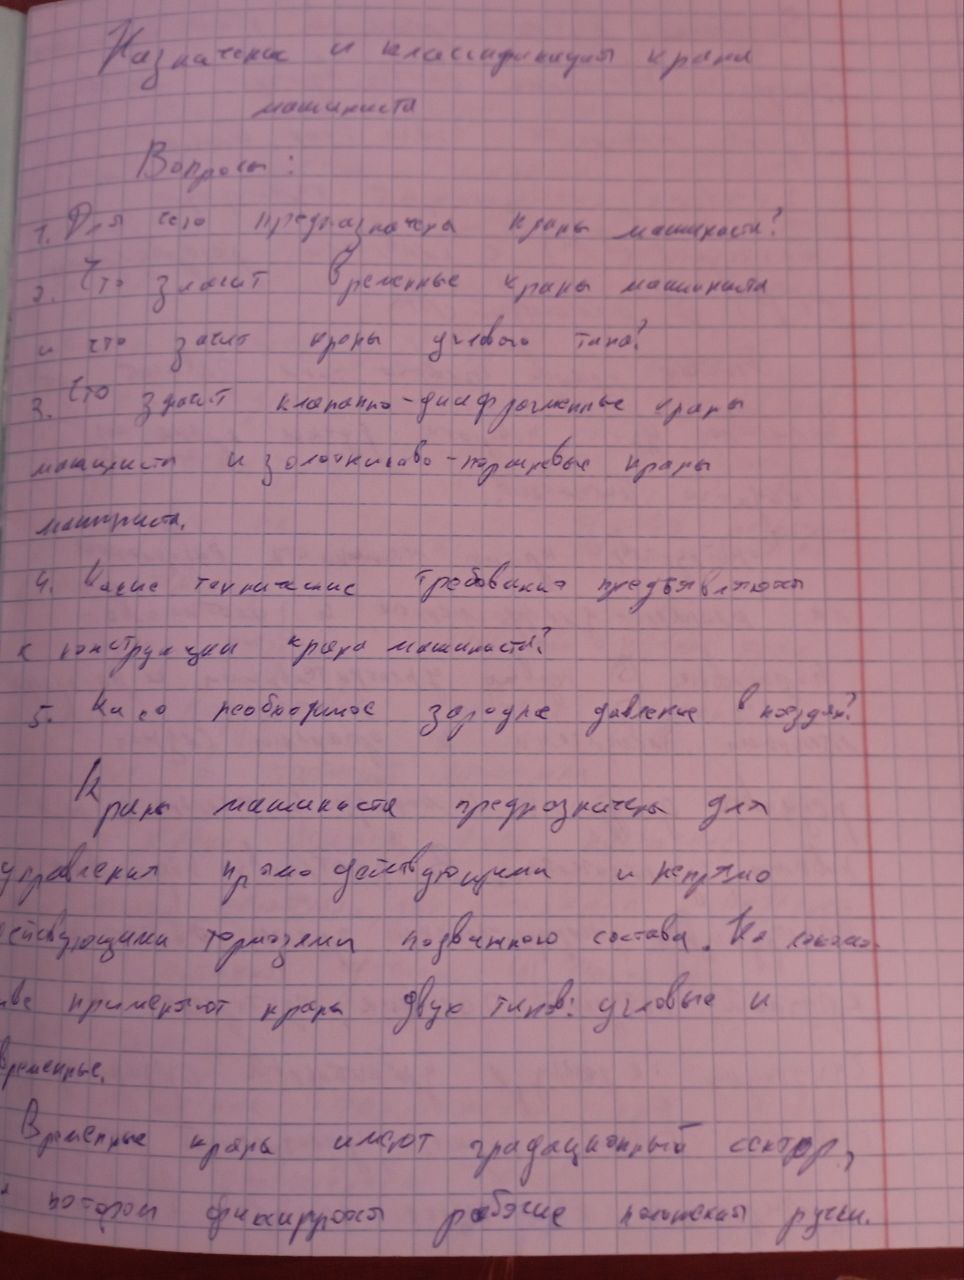 Назначение и классификация крана
машиниста
Вопросы:
1. Для чего предназначены краны машиниста?
2. Что значит временные краны машиниста
и что зачит краны углового типа?
3. Что значит клапанно-диафрагменные краны
машиниста и золотниково-поршневые краны
машиниста.
4. Какие технические требования предъявляются
к конструкции крана машиниста?
5. необходимое давление в поездах?
Краны машиниста предназначены для
управления прямо действующими и непрямо
действующими тормозами подвижного состава. На
применяют краны двух типов: угловые и
временные.
Временные краны имеют градационный сектор,
котором фиксируются рабочие положения ручки.